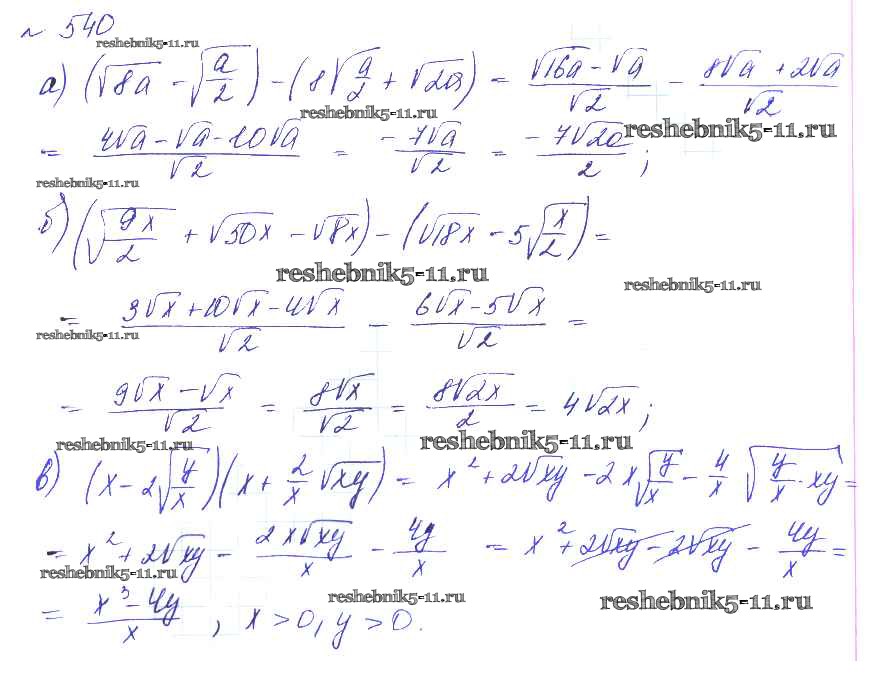 № 540
reshebnik5-11.ru
а) (√8a - √(a/2)) - (8√(a/2) + √2a) = (√16a - √a)/√2 - (8√a + 2√a)/√2
reshebnik5-11.ru
reshebnik5-11.ru
= (4√a - √a - 10√a)/√2 = -7√a/√2 = -7√2a/2;
reshebnik5-11.ru
б) (√(9x/2) + √50x - √8x) - (√18x - 5√(x/2)) =
reshebnik5-11.ru
reshebnik5-11.ru
= (3√x + 10√x - 4√x)/√2 - (6√x - 5√x)/√2 =
reshebnik5-11.ru
= (9√x - √x)/√2 = 8√x/√2 = 8√2x/2 = 4√2x;
reshebnik5-11.ru
reshebnik5-11.ru
в) (x - 2√(y/x))(x + 2/x √xy) = x² + 2√xy - 2x√(y/x) - 4/x √(y/x · xy) =
= x² + 2√xy - 2x√xy/x - 4y/x = x² + 2√xy - 2√xy - 4y/x =
reshebnik5-11.ru
reshebnik5-11.ru
reshebnik5-11.ru
= (x³ - 4y)/x, x > 0, y > 0.